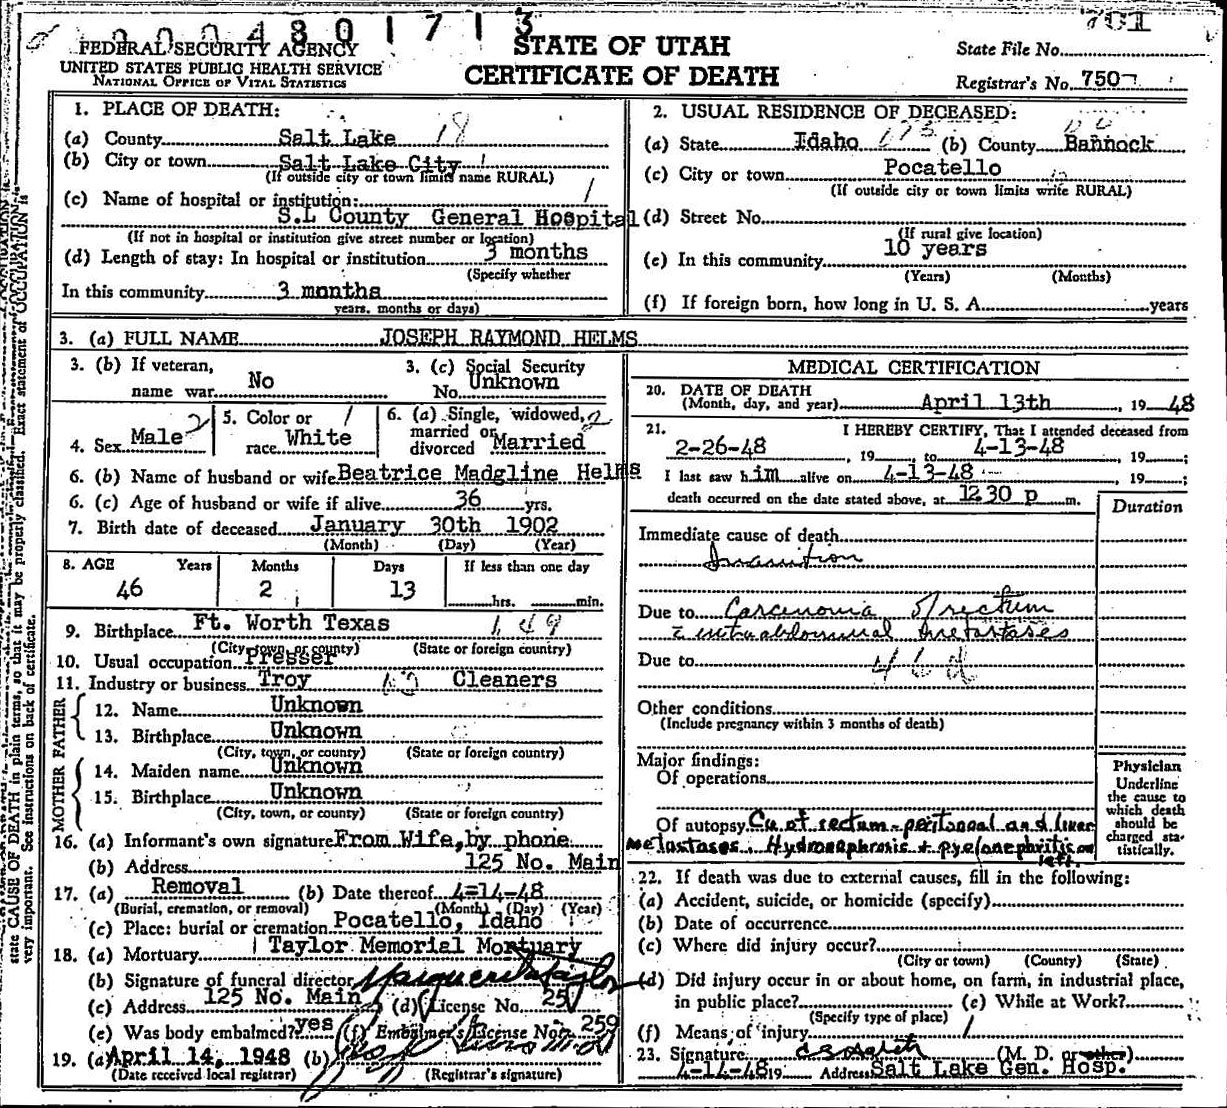 0004801713
701
FEDERAL SECURITY AGENCY
UNITED STATES PUBLIC HEALTH SERVICE
NATIONAL OFFICE OF VITAL STATISTICS
STATE OF UTAH
CERTIFICATE OF DEATH
State File No.
Registrar's No. 750
1. PLACE OF DEATH:
(a) County Salt Lake 18
(b) City or town Salt Lake City 1
(If outside city or town limits name RURAL)
(c) Name of hospital or institution: 1
S.L County General Hospital
(If not in hospital or institution give street number or location)
(d) Length of stay: In hospital or institution 3 months
(Specify whether
In this community 3 months
years, months or days)
2. USUAL RESIDENCE OF DECEASED:
(a) State Idaho (b) County Bannock
(c) City or town Pocatello
(If outside city or town limits write RURAL)
(d) Street No.
(If rural give location)
(e) In this community 10 years
(Years) (Months)
(f) If foreign born, how long in U. S. A. years
3. (a) FULL NAME JOSEPH RAYMOND HELMS
3. (b) If veteran,
name war No
3. (c) Social Security
No. Unknown
4. Sex Male 2
5. Color or 1
race White
6. (a) Single, widowed, 2
married or
divorced Married
6. (b) Name of husband or wife Beatrice Madgline Helms
6. (c) Age of husband or wife if alive 36 yrs.
7. Birth date of deceased January 30th 1902
(Month) (Day) (Year)
8. AGE Years Months Days If less than one day
46 2 13 hrs. min.
9. Birthplace Ft. Worth Texas 149
(City town, or county) (State or foreign country)
10. Usual occupation Presser
11. Industry or business Troy Cleaners
FATHER
12. Name Unknown
13. Birthplace Unknown
(City, town, or county) (State or foreign country)
MOTHER
14. Maiden name Unknown
15. Birthplace Unknown
(City, town, or county) (State or foreign country)
16. (a) Informant's own signature From Wife, by phone
(b) Address 125 No. Main
17. (a) Removal (b) Date thereof 4-14-48
(Burial, cremation, or removal) (Month) (Day) (Year)
(c) Place: burial or cremation Pocatello, Idaho
18. (a) Mortuary Taylor Memorial Mortuary
(b) Signature of funeral director Marguerite Taylor
(c) Address 125 No. Main (d) License No. 25
(e) Was body embalmed? yes (f) Embalmer's License No. 259
19. (a) April 14, 1948 (b)
(Date received local registrar) (Registrar's signature)
MEDICAL CERTIFICATION
20. DATE OF DEATH
(Month, day, and year) April 13th, 19 48
21. I HEREBY CERTIFY, That I attended deceased from
2-26-48, 19 to 4-13-48, 19 ;
I last saw him alive on 4-13-48, 19 ;
death occurred on the date stated above, at 12 30 p m.
Duration
Immediate cause of death
Inanition
Due to Carcinoma of rectum
c intraabdominal metastases
Due to 46d
Other conditions
(Include pregnancy within 3 months of death)
Major findings:
Of operations
Of autopsy Ca of rectum - peritoneal and liver
metastases. Hydronephrosis + pyelonephritis on
left.
Physician
Underline
the cause to
which death
should be
charged sta-
tistically.
22. If death was due to external causes, fill in the following:
(a) Accident, suicide, or homicide (specify)
(b) Date of occurrence
(c) Where did injury occur?
(City or town) (County) (State)
(d) Did injury occur in or about home, on farm, in industrial place,
in public place? (e) While at Work?
(Specify type of place)
(f) Means of injury 1
23. Signature (M. D. or other)
4-14-48 19 Address Salt Lake Gen. Hosp.
state CAUSE OF DEATH in plain terms, so that it may be properly classified. Exact statement of OCCUPATION is
very important. See instructions on back of certificate.